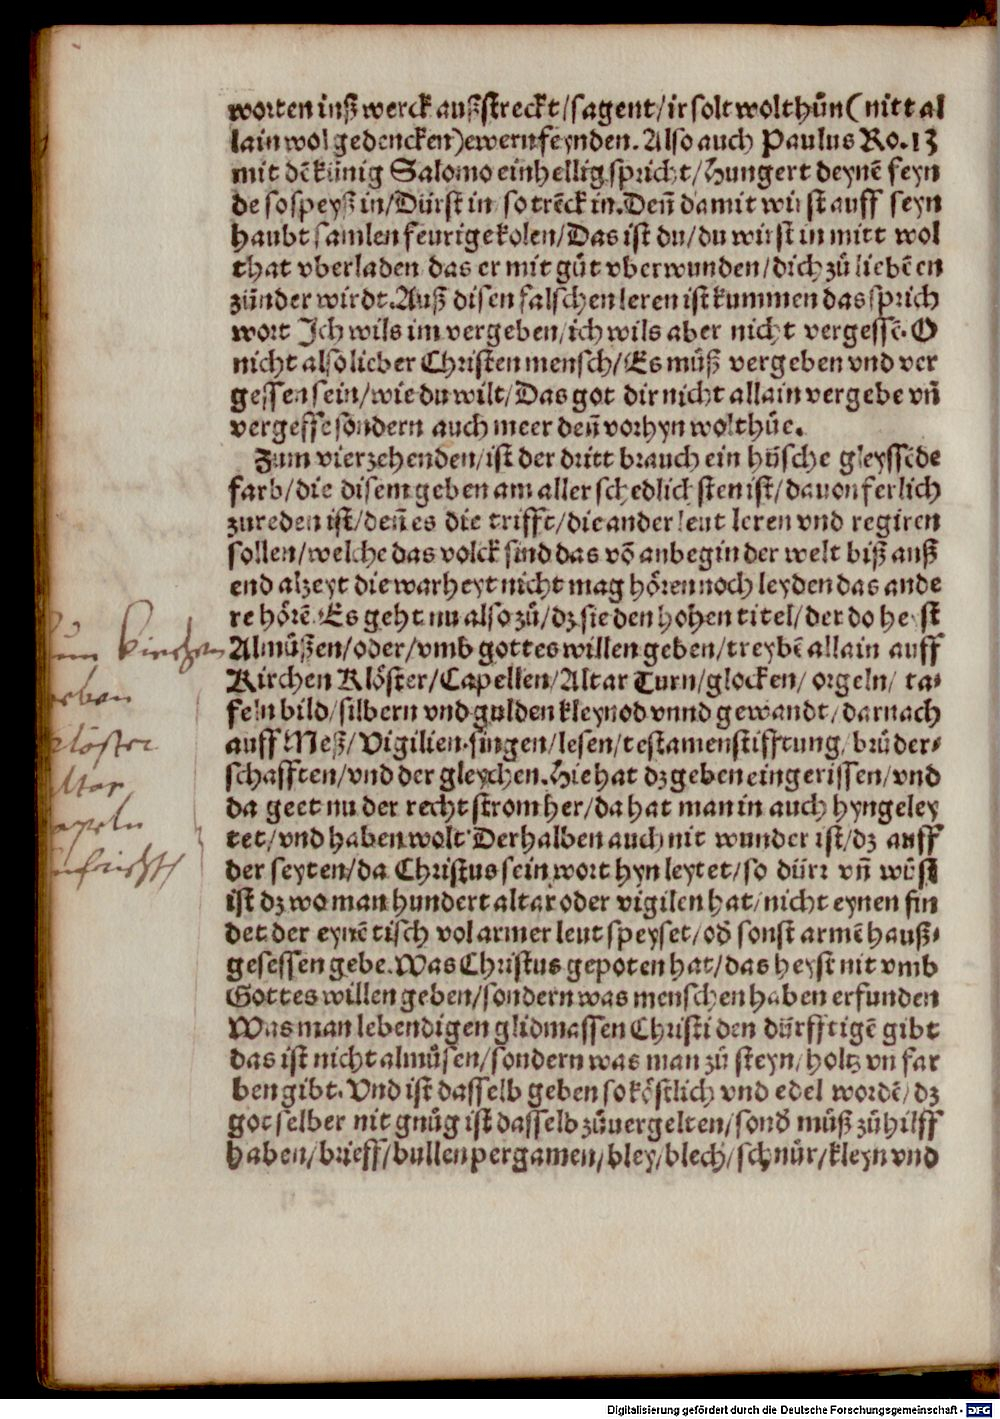 worten inß werck außstreckt/sagent/ir solt wolthůn(nitt al
lain wol gedencken)ewern feynden. Also auch Paulus Ro.13
mit dē künig Salomo einhellig spricht/Hungert deynē feyn
de so speyß in/Dürst in so trēck in.Deñ damit wirst auff seyn
haubt samlen feurige kolen/Das ist du/du wirst in mitt wol
that vberladen das er mit gůt vberwunden/dich zů liebē en
zünder wirdt.Auß disen falschen leren ist kummen das sprich
wort Ich wils im vergeben/ich wils aber nicht vergessē. O
nicht also lieber Christen mensch/Es můß vergeben vnd ver
gessen sein/wie du wilt/Das got dir nicht allain vergebe vñ
vergesse sondern auch meer deñ vorhyn wolthůe.
Zum vierzehenden/ist der dritt brauch ein hüsche gleyssēde
farb/die disem geben am aller schedlichsten ist/dauon ferlich
zureden ist/deñ es die trifft/die ander leut leren vnd regiren
sollen/welche das volck sind das vō anbegin der welt biß anß
end alzeyt die warheyt nicht mag hören noch leyden das ande
re hörē. Es geht nu also zů/dz sie den hohen titel/der do heyst
Almůßen/oder/vmb gottes willen geben/treybē allain auff
Kirchen Klöster/Capellen/Altar Turn/glocken/ orgeln/ ta⸗
feln bild/silbern vnd gulden kleynod vnnd gewandt/darnach
auff Meß/Vigilien singen/lesen/testamenstifftung/brůder⸗
schafften/vnd der gleychen.Hie hat dz geben eingerissen/vnd
da geet nu der recht strom her/da hat man in auch hyngeley
tet/vnd haben wolt Derhalben auch nit wunder ist/dz auff
der seyten/da Christus sein wort hyn leytet/so dürr vñ wůst
ist dz wo man hundert altar oder vigilen hat/nicht eynen fin
det der eynē tisch vol armer leut speyset/oď sonst armē hauß⸗
gesessen gebe.Was Christus gepoten hat/das heyst nit vmb
Gottes willen geben/sondern was menschen haben erfunden
Was man lebendigen glidmassen Christi den dürfftigē gibt
das ist nicht almůsen/sondern was man zů steyn/holtz vn far
ben gibt. Vnd ist dasselb geben so köstlich vnd edel wordē/dz
got selber nit gnůg ist dasselb zůuergelten/sonď můß zů hilff
haben/brieff/bullen pergamen/bley/blech/schnůr/kleyn vnd
Kirchen
Digitalisierung gefördert durch die Deutsche Forschungsgemeinschaft - DFG